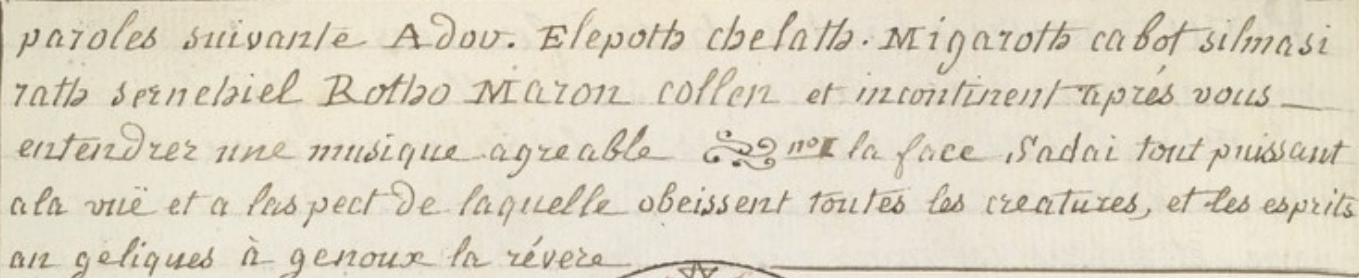 paroles suivante Adov. Elepoth chelath. Migaroth cabot silmasi
rath sernehiel Rotho Maron collen et incontinent aprés vous
entendrer une musique agreable no I la face Sadai tout puissant
a la vuë et a laspect de laquelle obeissent toutes les creatures, et les esprits
an geliques à genoux la révere